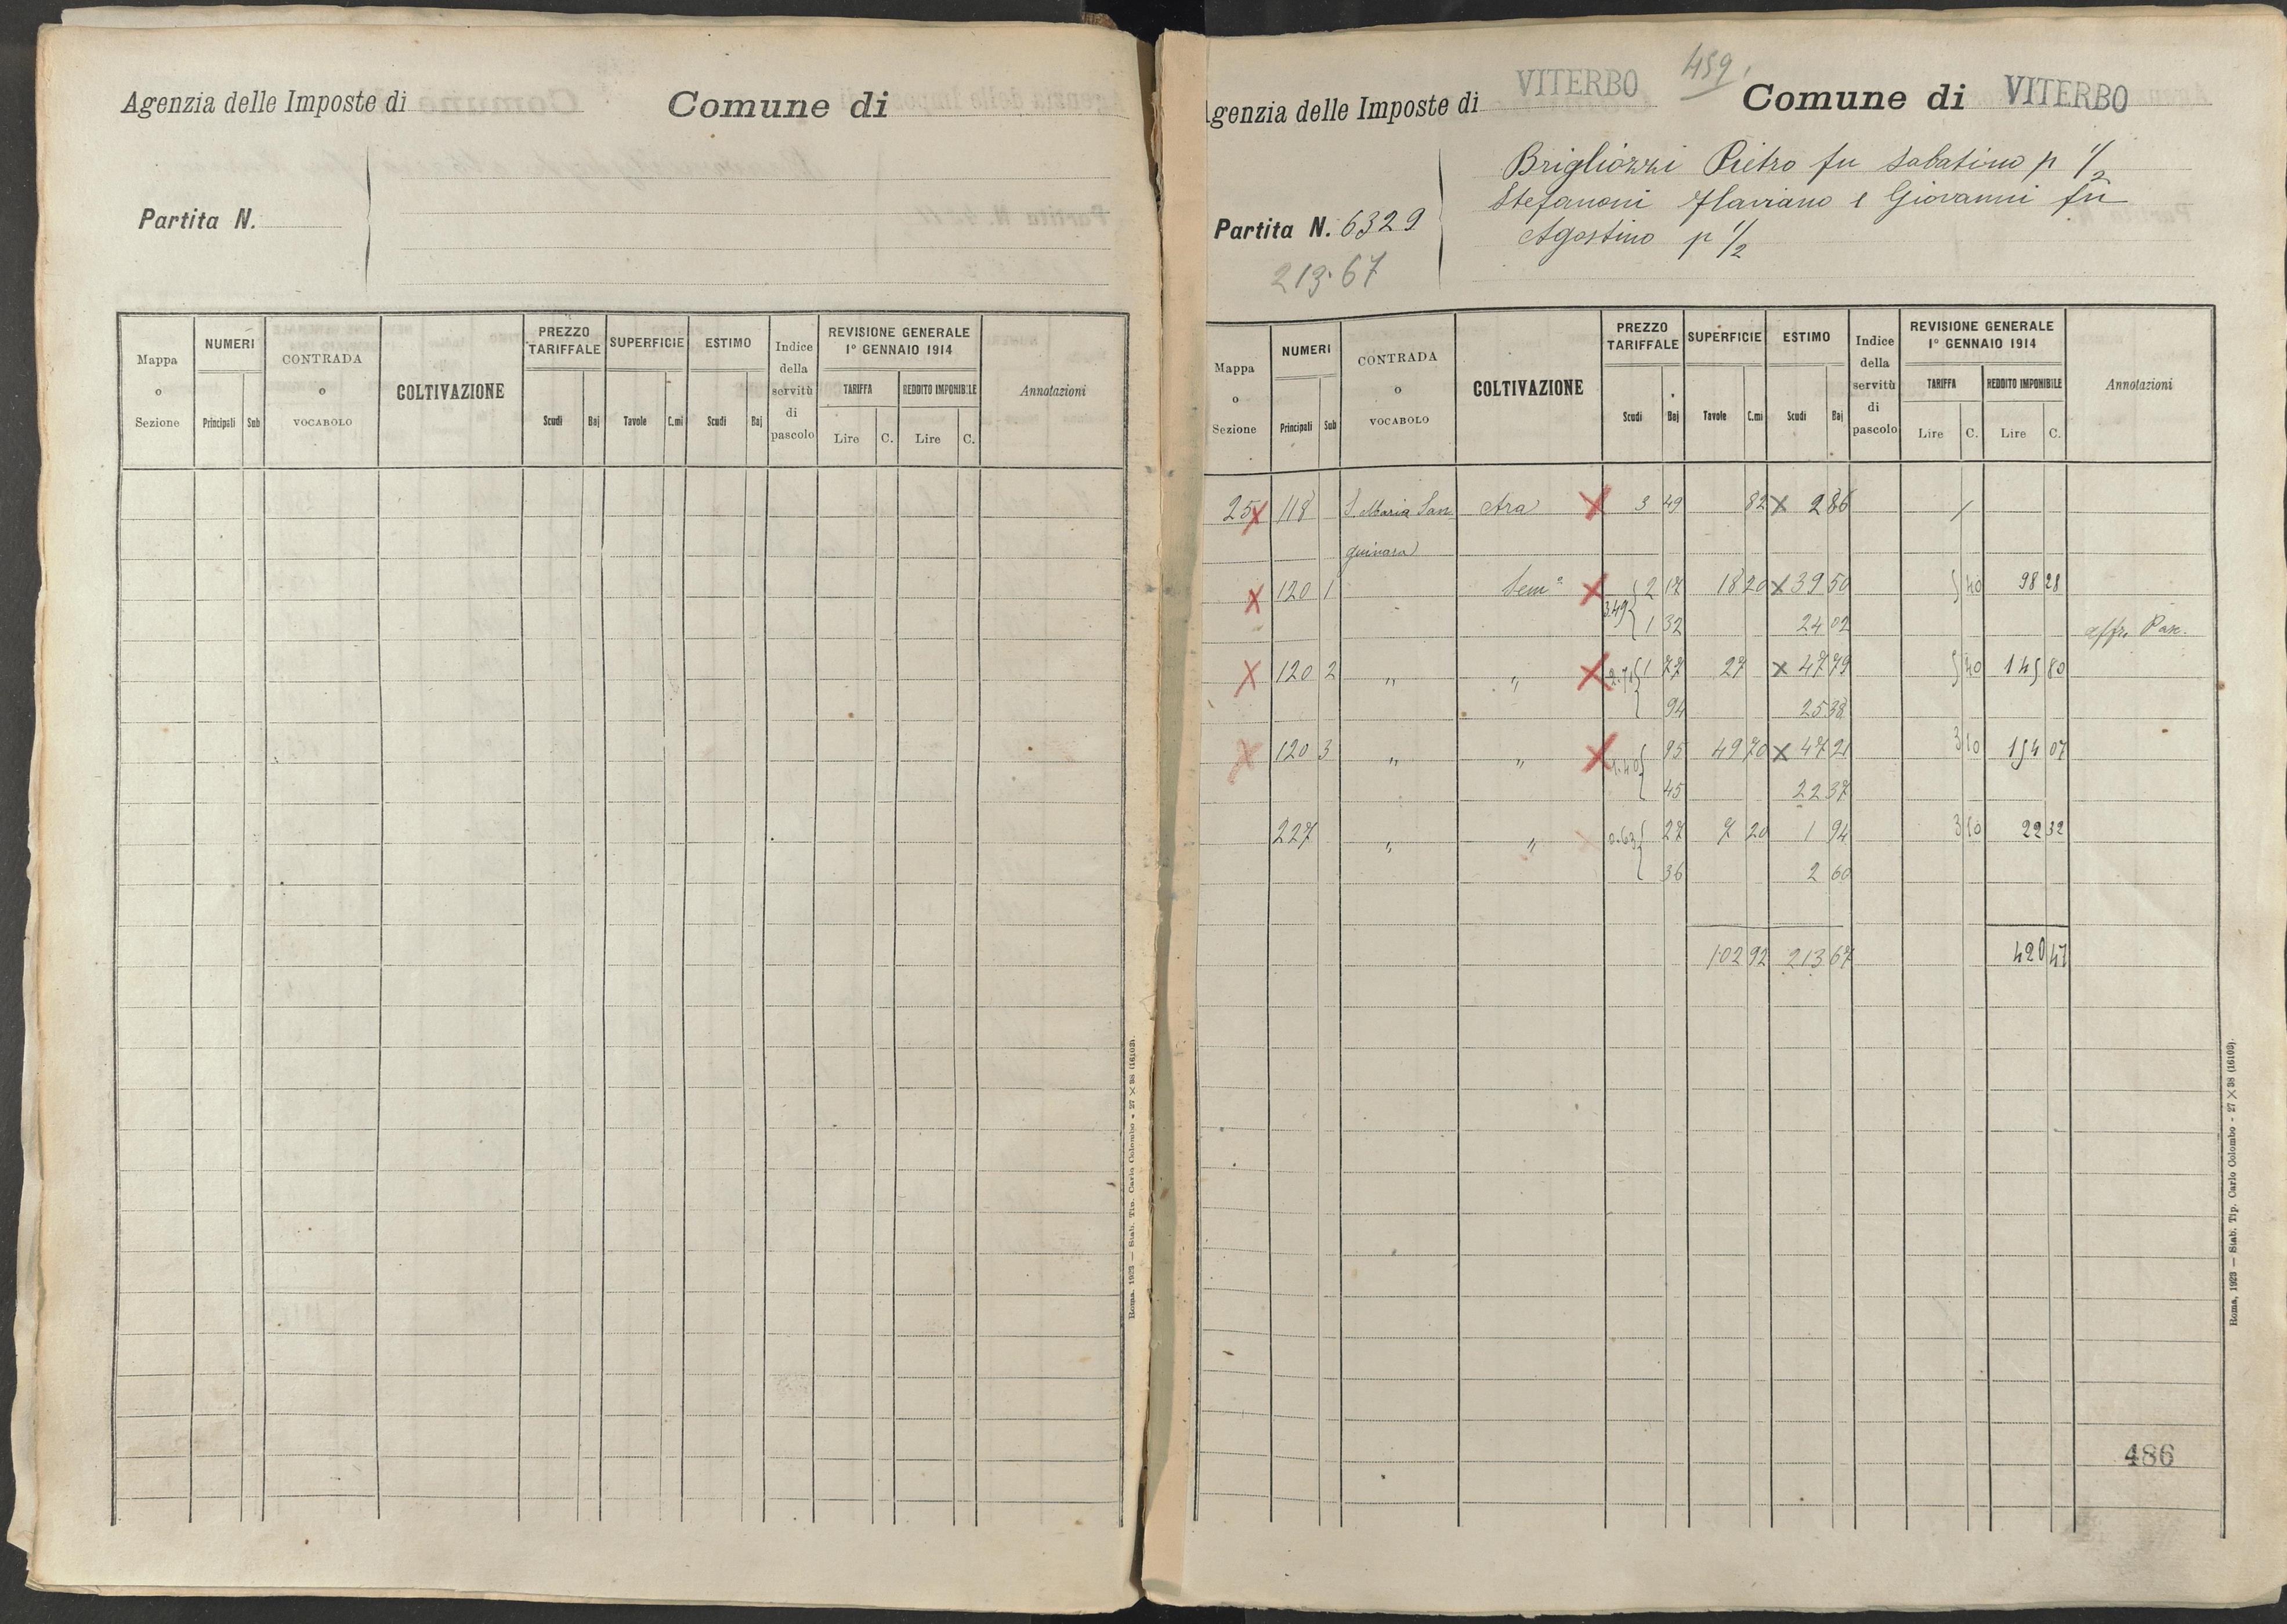 Agenzia delle Imposte di
Comune di
Partita N.
Mappa o Sezione
NUMERI
Principali Sub
CONTRADA o VOCABOLO
COLTIVAZIONE
PREZZO TARIFFALE
Scudi Baj
SUPERFICIE
Tavole C.mi
ESTIMO
Scudi Baj
Indice della servitù di pascolo
REVISIONE GENERALE
1° GENNAIO 1914
TARIFFA REDDITO IMPONIBILE
Lire C. Lire C.
Annotazioni
Roma, 1923 — Stab. Tip. Carlo Colombo - 27 × 38 (16103).
459
Agenzia delle Imposte di VITERBO
Comune di VITERBO
Brigliozzi Pietro fu Sabatino p 1/2
Stefanoni Flaviano e Giovanni fu
Agostino p 1/2
Partita N. 6329
213.67
Mappa o Sezione
NUMERI
Principali Sub
CONTRADA o VOCABOLO
COLTIVAZIONE
PREZZO TARIFFALE
Scudi Baj
SUPERFICIE
Tavole C.mi
ESTIMO
Scudi Baj
Indice della servitù di pascolo
REVISIONE GENERALE
1° GENNAIO 1914
TARIFFA REDDITO IMPONIBILE
Lire C. Lire C.
Annotazioni
25 x 118 S. Maria San Ara x 3 49 82 x 2 86 /
guinara
x 120 1 Sem° x 2 17 18 20 x 39 50 5 40 98 28
3.49 1 32 24 02 affr. Pas.
x 120 2 " " x 2.71 1 77 27 x 47 79 5 40 145 80
94 25 38
x 120 3 " " x 1.40 95 49 70 x 47 21 3 10 154 07
45 22 37
227 " " 0.63 27 7 20 1 94 3 10 22 32
36 2 60
102 92 213 67 420 47
486
Roma, 1923 — Stab. Tip. Carlo Colombo - 27 × 38 (16103).